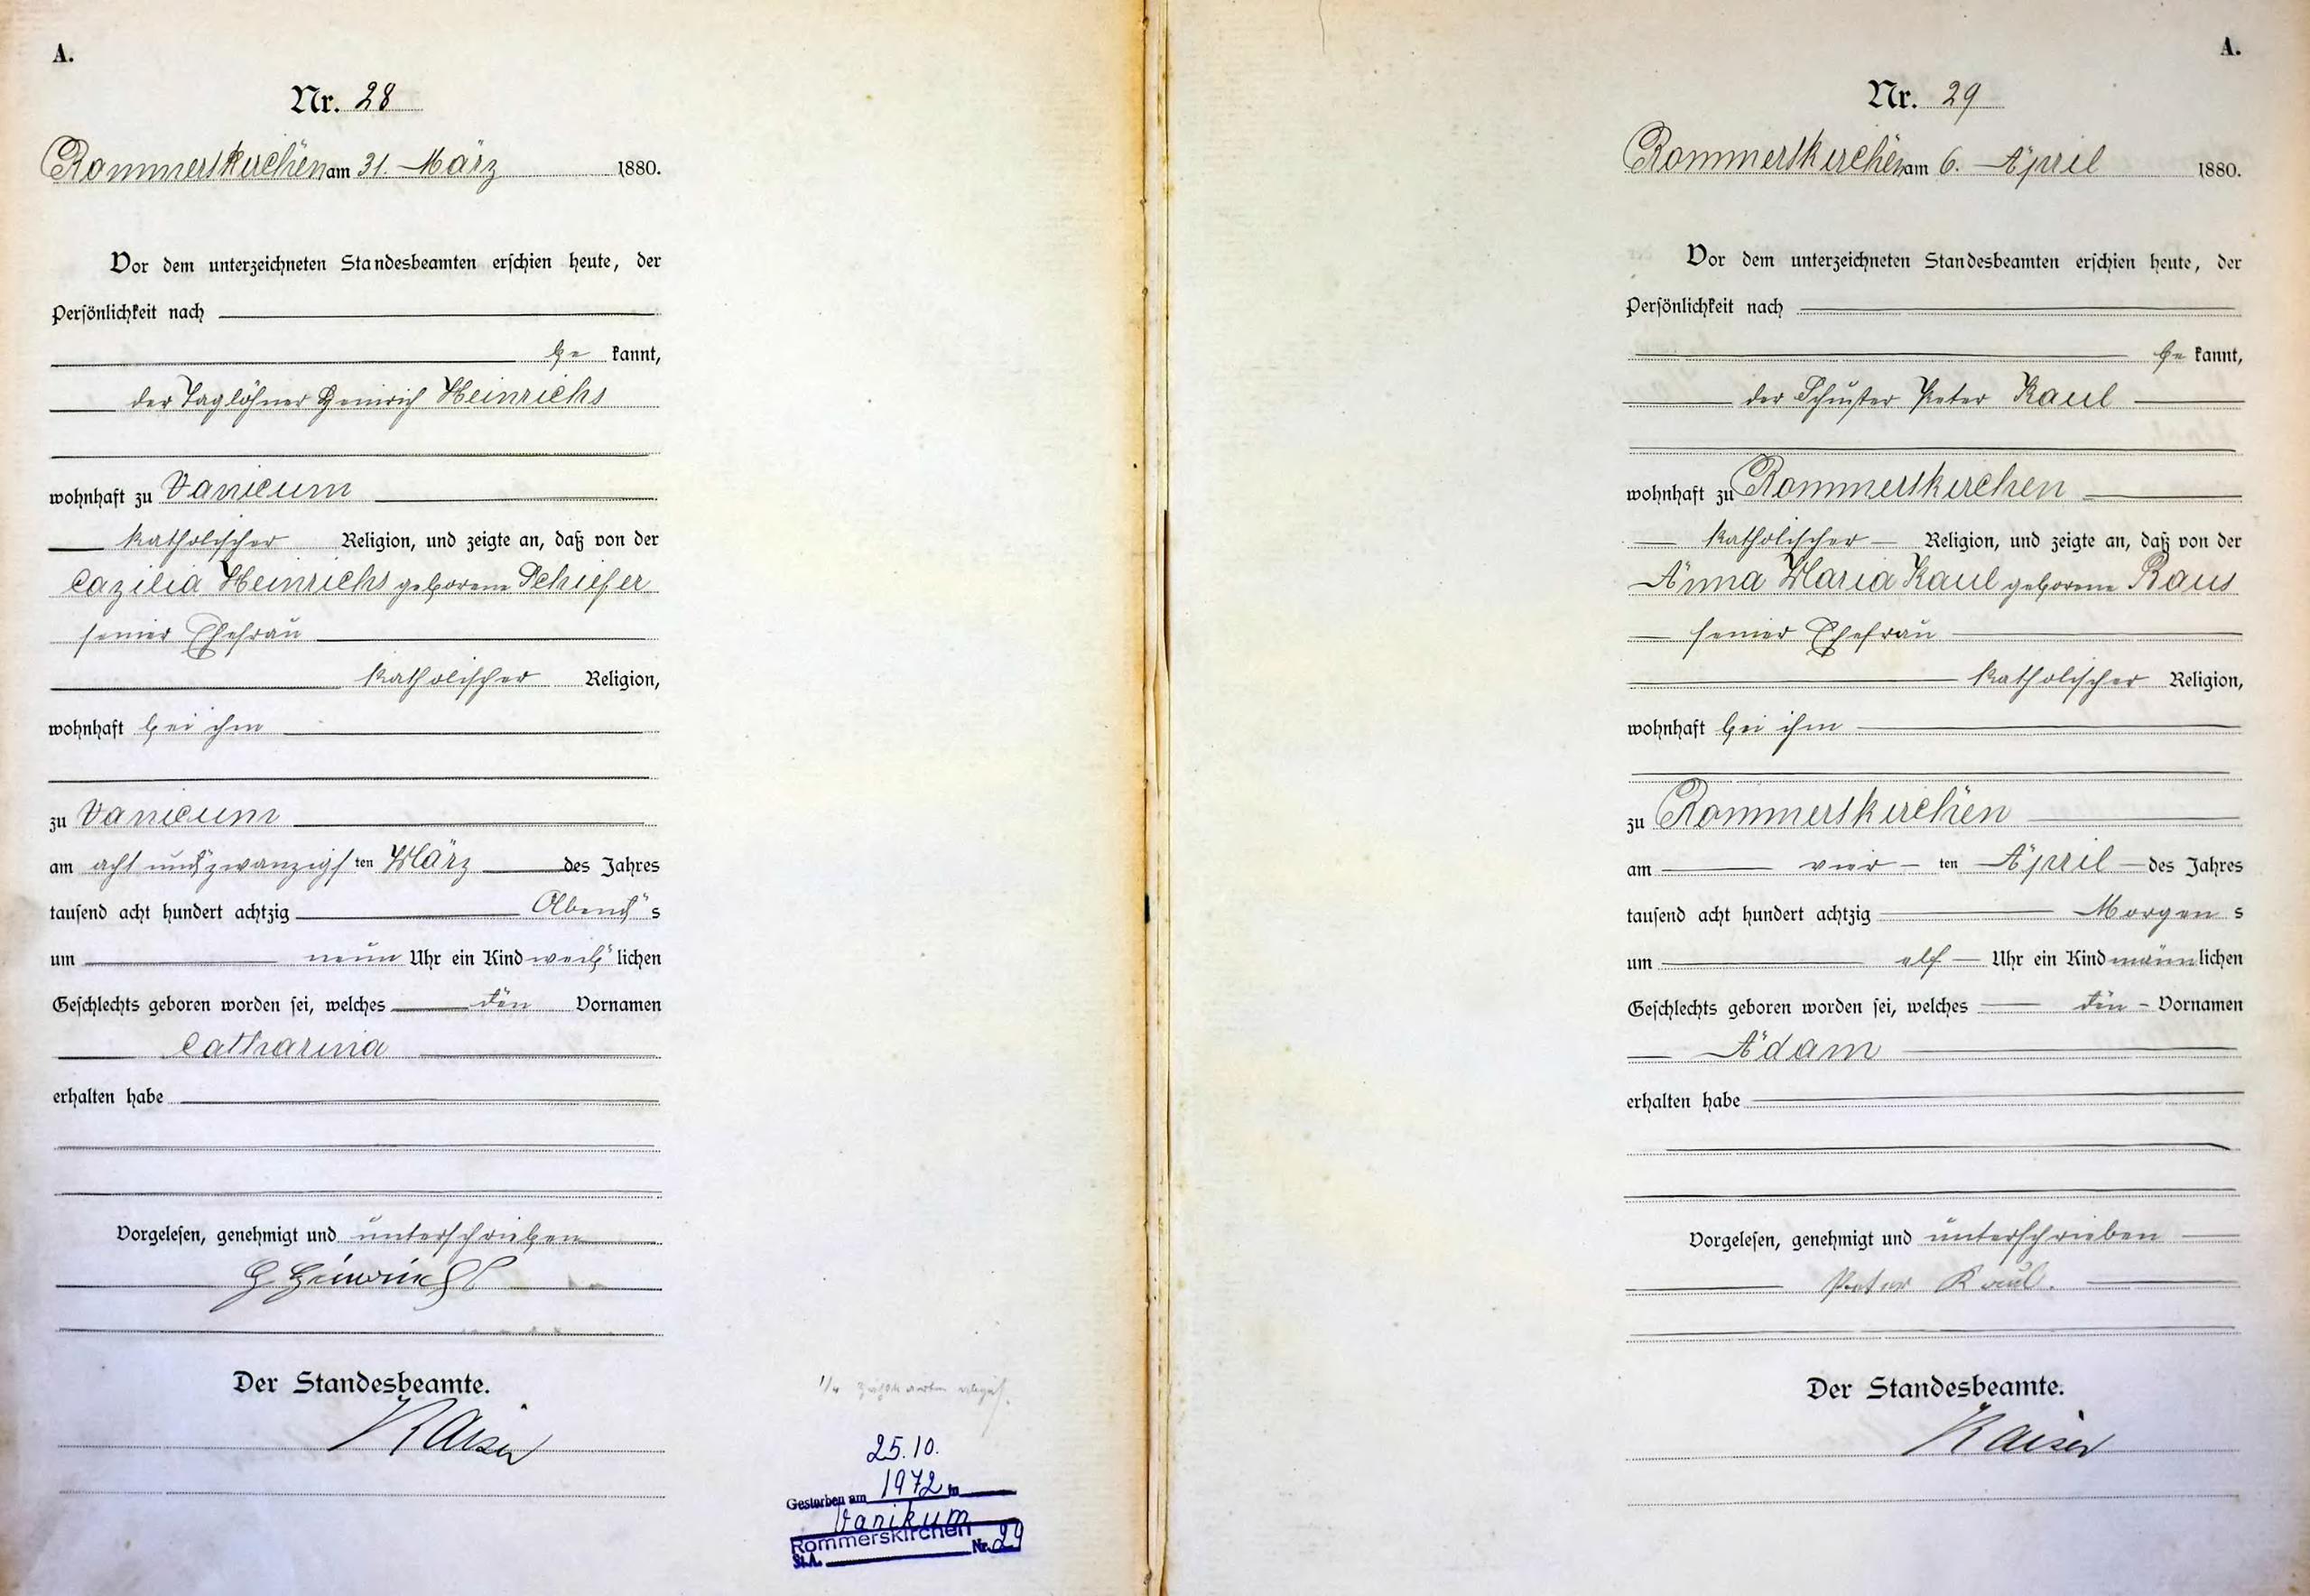 A.
Nr. 28
Rommerskirchen am 31. März 1880.
Vor dem unterzeichneten Standesbeamten erschien heute, der
Persönlichkeit nach
be kannt,
der Taglöhner Heinrich Heinrichs
wohnhaft zu Vanicum
katholischer Religion, und zeigte an, daß von der
Cäzilia Heinrichs geborene Schiefer
seiner Ehefrau
katholischer Religion,
wohnhaft bei ihm
zu Vanicum
am acht und zwanzigsten März des Jahres
tausend acht hundert achtzig Abends
um neun Uhr ein Kind weiblichen
Geschlechts geboren worden sei, welches den Vornamen
Catharina
erhalten habe
Vorgelesen, genehmigt und unterschrieben
H Heinrichs
Der Standesbeamte.
Kaiser
25.10.
Gestorben am 1972 in
Vanikum
Rommerskirchen
St.A. Nr. 29
A.
Nr. 29
Rommerskirchen am 6. April 1880.
Vor dem unterzeichneten Standesbeamten erschien heute, der
Persönlichkeit nach
be kannt,
der Schuster Peter Kaul
wohnhaft zu Rommerskirchen
katholischer Religion, und zeigte an, daß von der
Anna Maria Kaul geborene Baus
seiner Ehefrau
katholischer Religion,
wohnhaft bei ihm
zu Rommerskirchen
am vier ten April des Jahres
tausend acht hundert achtzig Morgen s
um elf Uhr ein Kind männlichen
Geschlechts geboren worden sei, welches den Vornamen
Adam
erhalten habe
Vorgelesen, genehmigt und unterschrieben
Peter Kaul.
Der Standesbeamte.
Kaiser